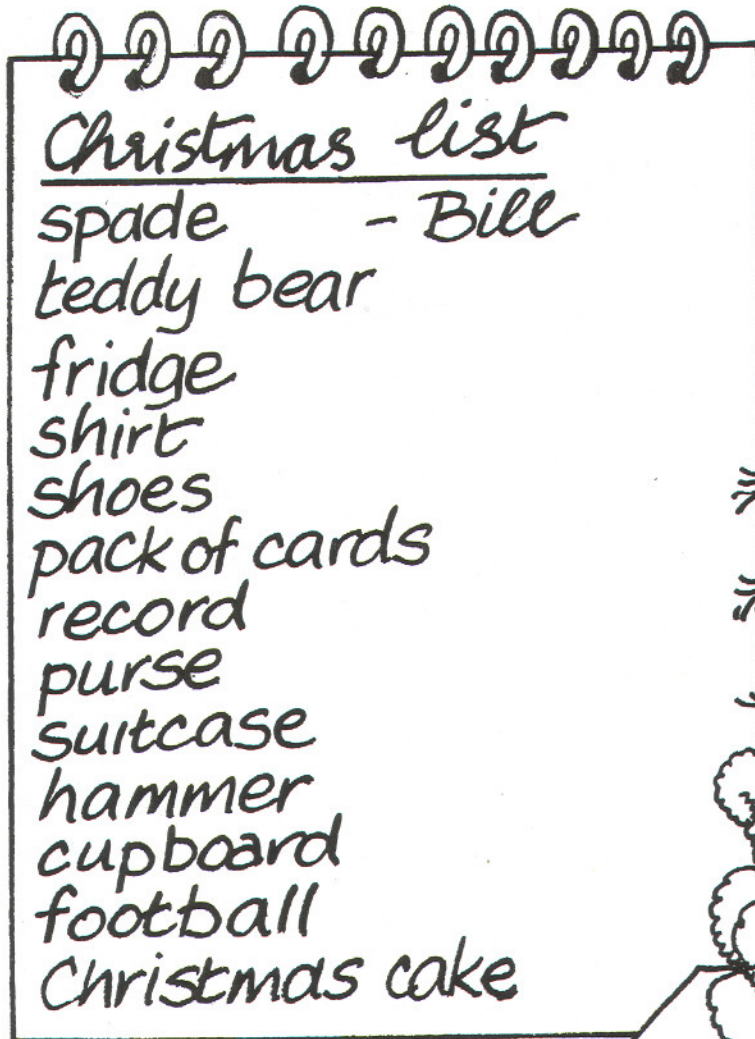 Christmas list
spade - Bill
teddy bear
fridge
shirt
shoes
pack of cards
record
purse
suitcase
hammer
cupboard
football
Christmas cake